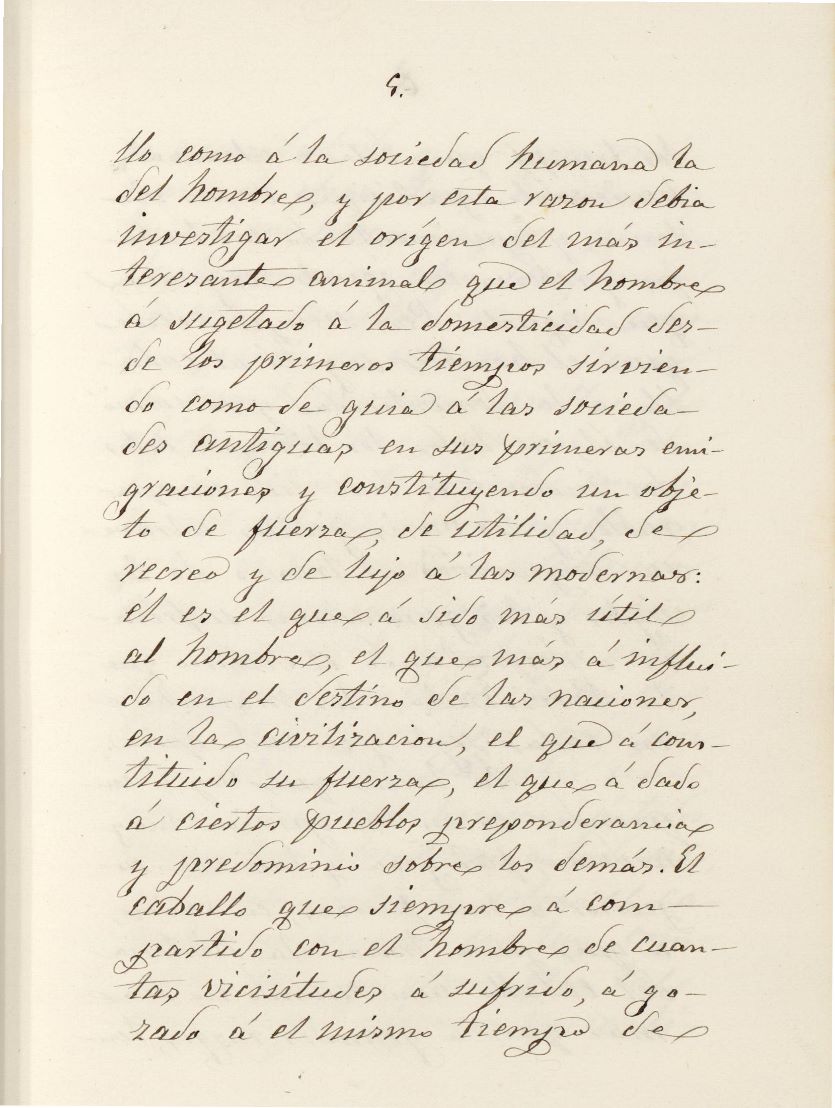 5.
llo como á la sociedad humana la
del hombre, y por esta razon debia
investigar el orígen del más in-
teresante animal que el hombre
á sugetado á la domesticidad des-
de los primeros tiempos sirvien-
do como de guia á las socieda-
des antiguas en sus primeras emi-
graciones y constituyendo un obje-
to de fuerza, de utilidad, de
recreo y de lujo á las modernas:
él es el que á sido más útil
al hombre, el que más á influi-
do en el destino de las naciones,
en la civilizacion, el que á cons-
tituido su fuerza, el que á dado
á ciertos pueblos preponderancia
y predominio sobre los demás. El
caballo que siempre á com-
partido con el hombre de cuan-
tas vicisitudes á sufrido, á go-
zado á el mismo tiempo de